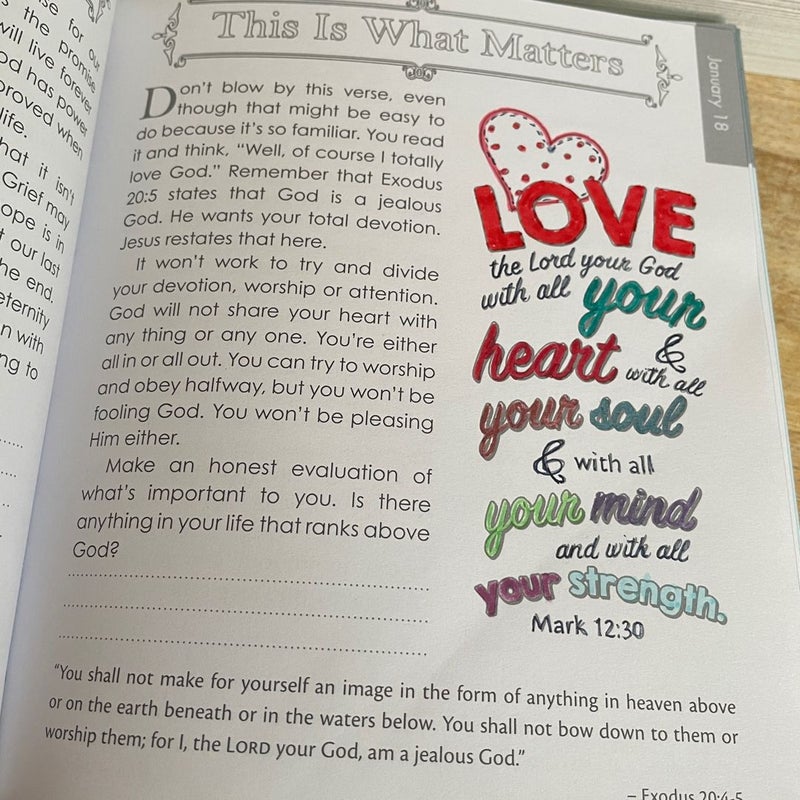 se for our
s the promise
will live forever
od has power
proved when
life.
hat it isn't
Grief may
ope is in
t our last
he end.
eternity
n with
ng to
This Is What Matters
January 18
Don't blow by this verse, even
though that might be easy to
do because it's so familiar. You read
it and think, “Well, of course I totally
love God.” Remember that Exodus
20:5 states that God is a jealous
God. He wants your total devotion.
Jesus restates that here.
It won't work to try and divide
your devotion, worship or attention.
God will not share your heart with
any thing or any one. You're either
all in or all out. You can try to worship
and obey halfway, but you won't be
fooling God. You won't be pleasing
Him either.
Make an honest evaluation of
what's important to you. Is there
anything in your life that ranks above
God?
LOVE
the Lord your God
with all your
heart &
with all
your soul
& with all
your mind
and with all
your strength.
Mark 12:30
“You shall not make for yourself an image in the form of anything in heaven above
or on the earth beneath or in the waters below. You shall not bow down to them or
worship them; for I, the LORD your God, am a jealous God.”
– Exodus 20:4-5